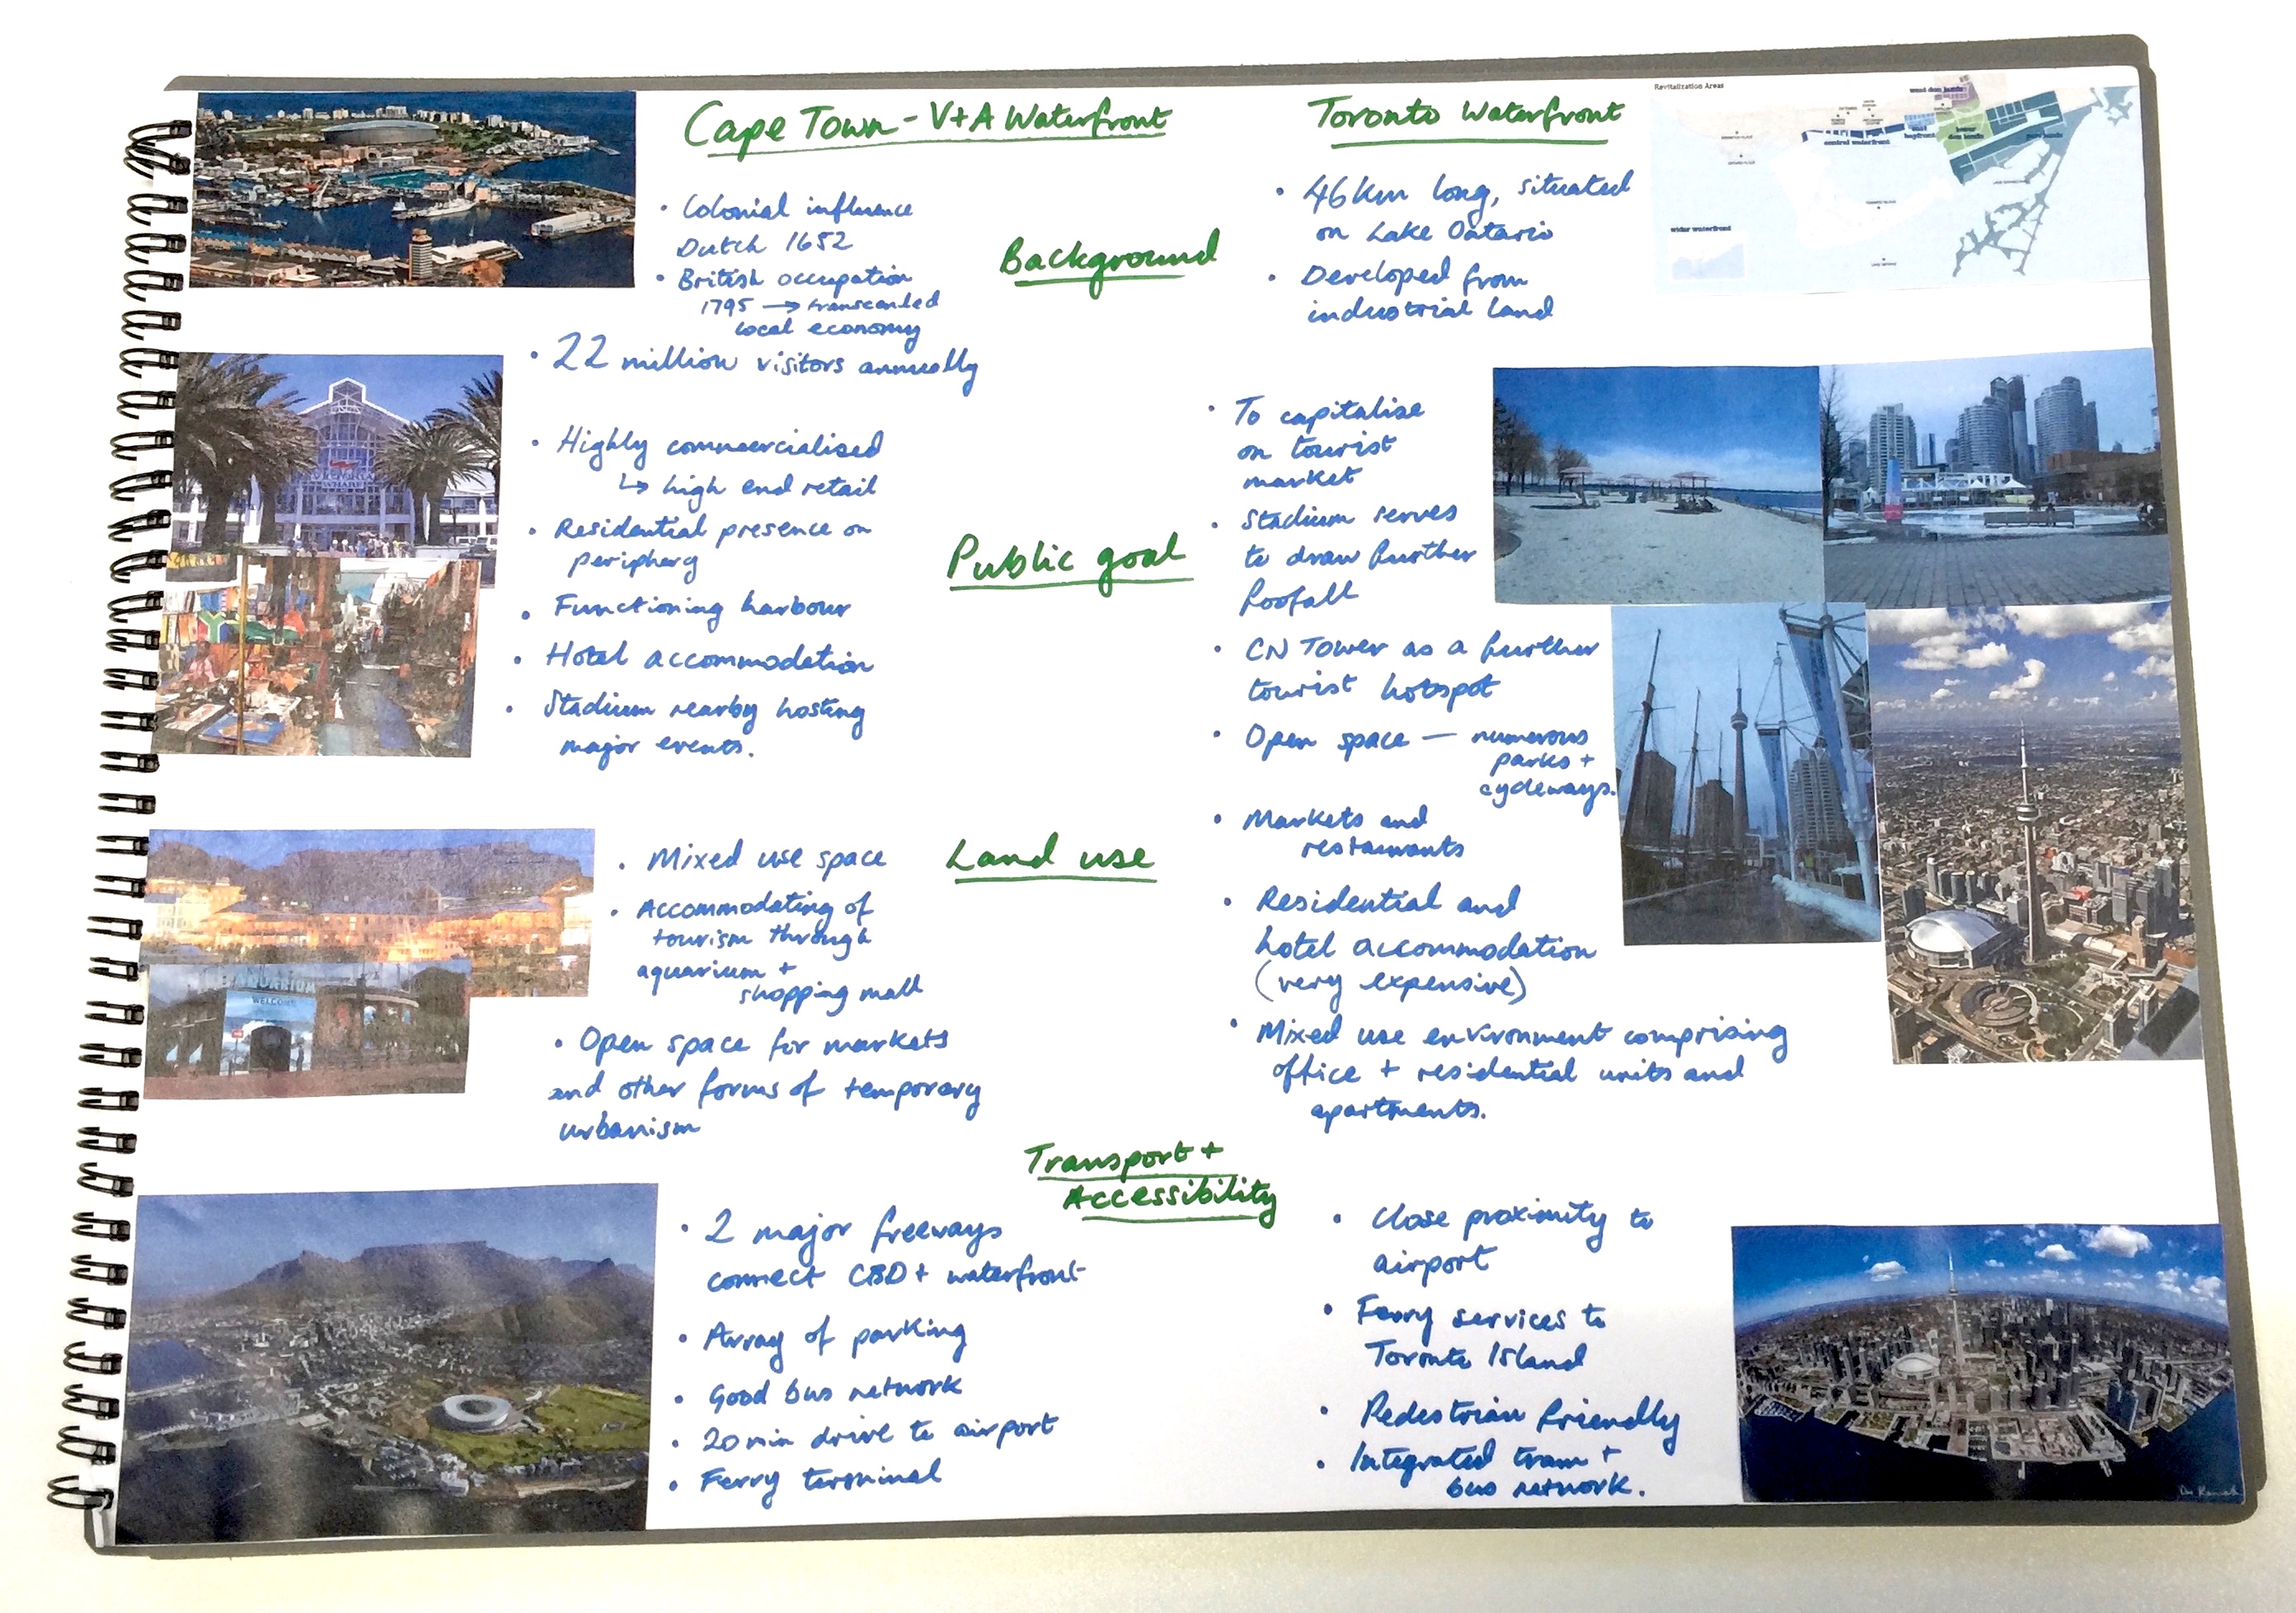 Cape Town - V+A Waterfront
• Colonial influence
Dutch 1652
• British occupation
1795 → transcended
local economy
• 22 million visitors annually
Background
Toronto Waterfront
• 46km long, situated
on Lake Ontario
• Developed from
industrial land
Revitalization Areas
west don lands
east bayfront
lower don lands
port lands
central waterfront
wider waterfront
• Highly commercialised
↳ high end retail
• Residential presence on
periphery
• Functioning harbour
• Hotel accommodation
• Stadium nearby hosting
major events.
Public goal
• To capitalise
on tourist
market
• Stadium serves
to draw further
foofall
• CN Tower as a further
tourist hotspot
• Open space — numerous
parks +
cycleways.
• Markets and
restaurants
• Residential and
hotel accommodation
(very expensive)
• Mixed use environment comprising
office + residential units and
apartments.
Land use
• Mixed use space
• Accommodating of
tourism through
aquarium +
shopping mall
• Open space for markets
and other forms of temporary
urbanism
AQUARIUM
WELCOME
Transport +
Accessibility
• 2 major freeways
connect CBD + waterfront
• Array of parking
• Good bus network
• 20 min drive to airport
• Ferry terminal
• Close proximity to
airport
• Ferry services to
Toronto Island
• Pedestrian friendly
• Integrated tram +
bus network.